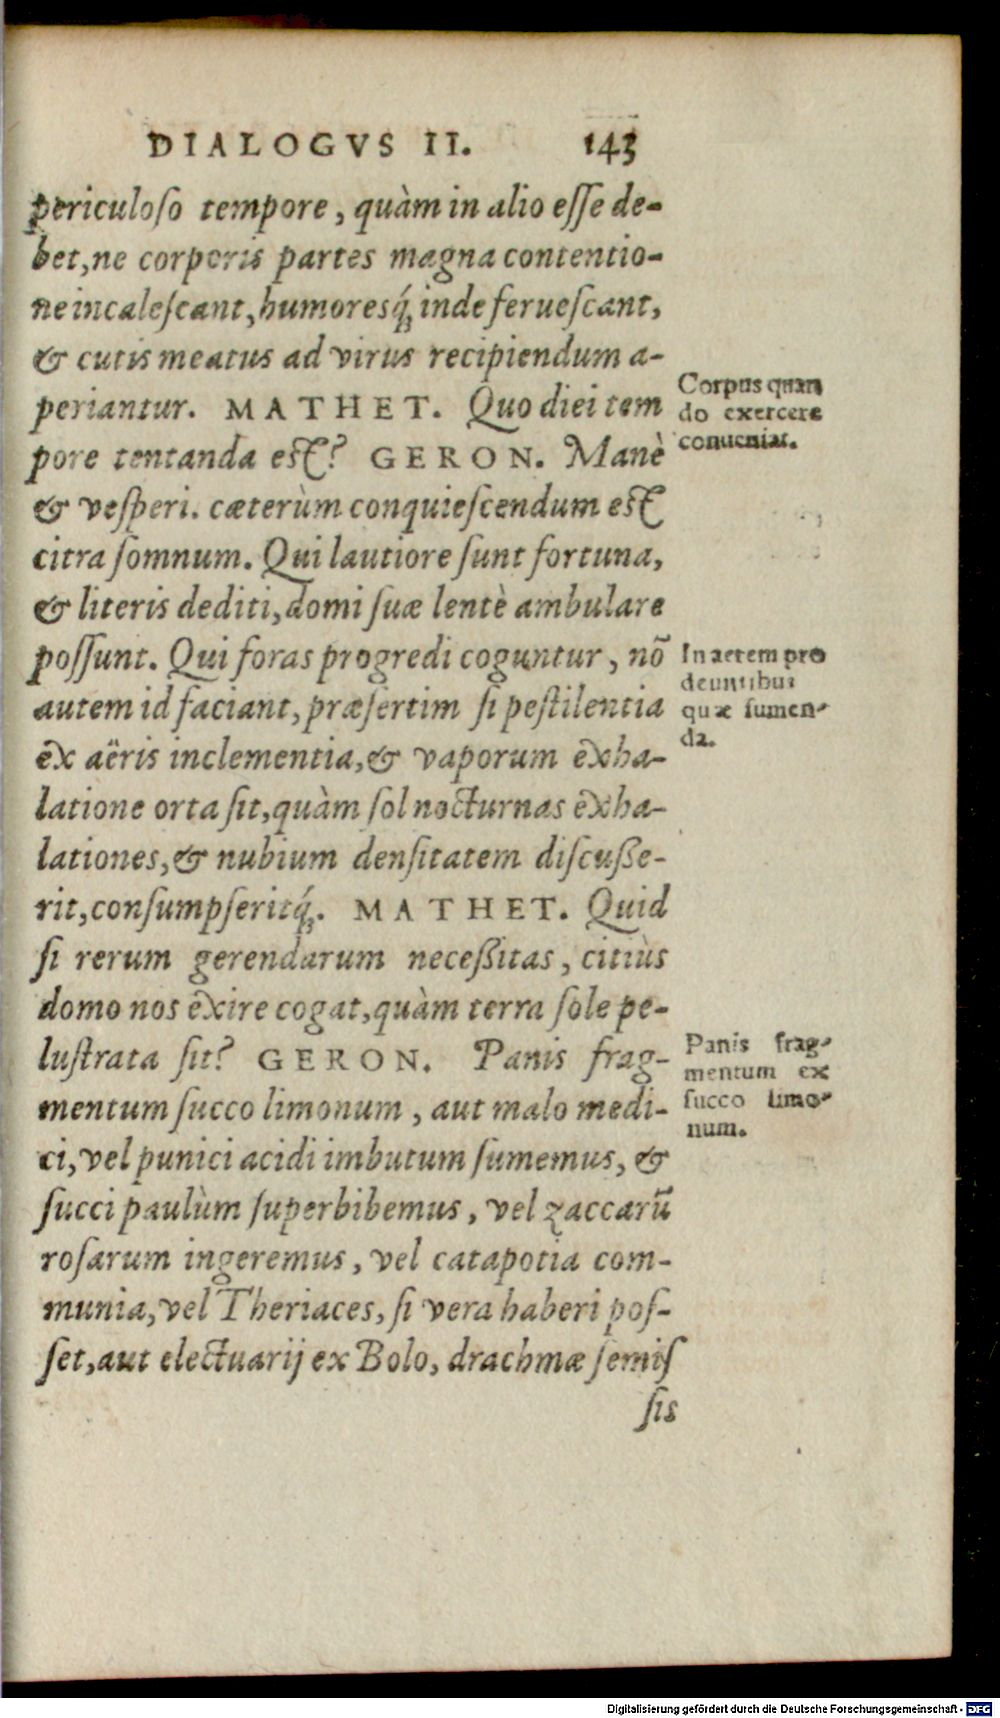 DIALOGVS II. 143
periculoſo tempore, quàm in alio eſſe de-
bet, ne corporis partes magna contentio-
ne incaleſcant, humoresq́; inde feruеſcant,
& cutis meatus ad virus recipiendum a-
periantur. MATHET. Quo diei tem
pore tentanda eſt? GERON. Manè
& veſperi. cæterùm conquieſcendum eſt
citra ſomnum. Qui lautiore ſunt fortuna,
& literis dediti, domi ſuæ lentè ambulare
poſſunt. Qui foras progredi coguntur, nō
autem id faciant, præſertim ſi peſtilentia
ex aëris inclementia, & vaporum exha-
latione orta ſit, quàm ſol nocturnas exha-
lationes, & nubium denſitatem diſcuße-
rit, conſumpſeritq́;. MATHET. Quid
ſi rerum gerendarum neceßitas, citiùs
domo nos exire cogat, quàm terra ſole pe-
luſtrata ſit? GERON. Panis frag-
mentum ſucco limonum, aut malo medi-
ci, vel punici acidi imbutum ſumemus, &
ſucci paulùm ſuperbibemus, vel zaccarū
roſarum ingeremus, vel catapotia com-
munia, vel Theriaces, ſi vera haberi poſ-
ſet, aut electuarij ex Bolo, drachmæ ſemiſ
ſis
Corpus quan
do exercere
conueniat.
In aerem pro
deuntibus
quæ ſumen-
da.
Panis frag-
mentum ex
ſucco limo-
num.
Digitalisierung gefördert durch die Deutsche Forschungsgemeinschaft - DFG